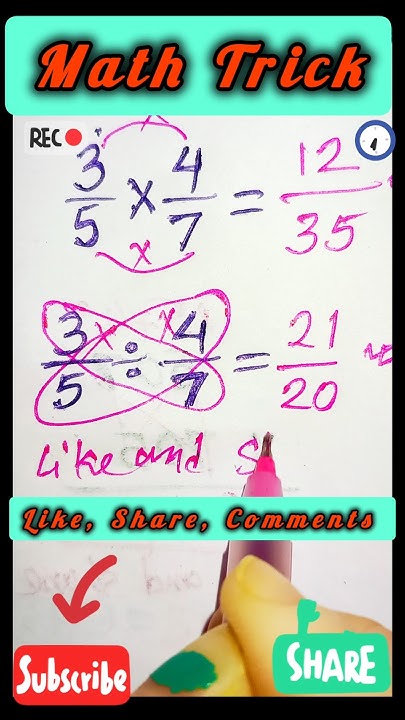 Math Trick
REC
3/5 × 4/7 = 12/35
3/5 ÷ 4/7 = 21/20
Like and S
Like, Share, Comments
Subscribe
SHARE